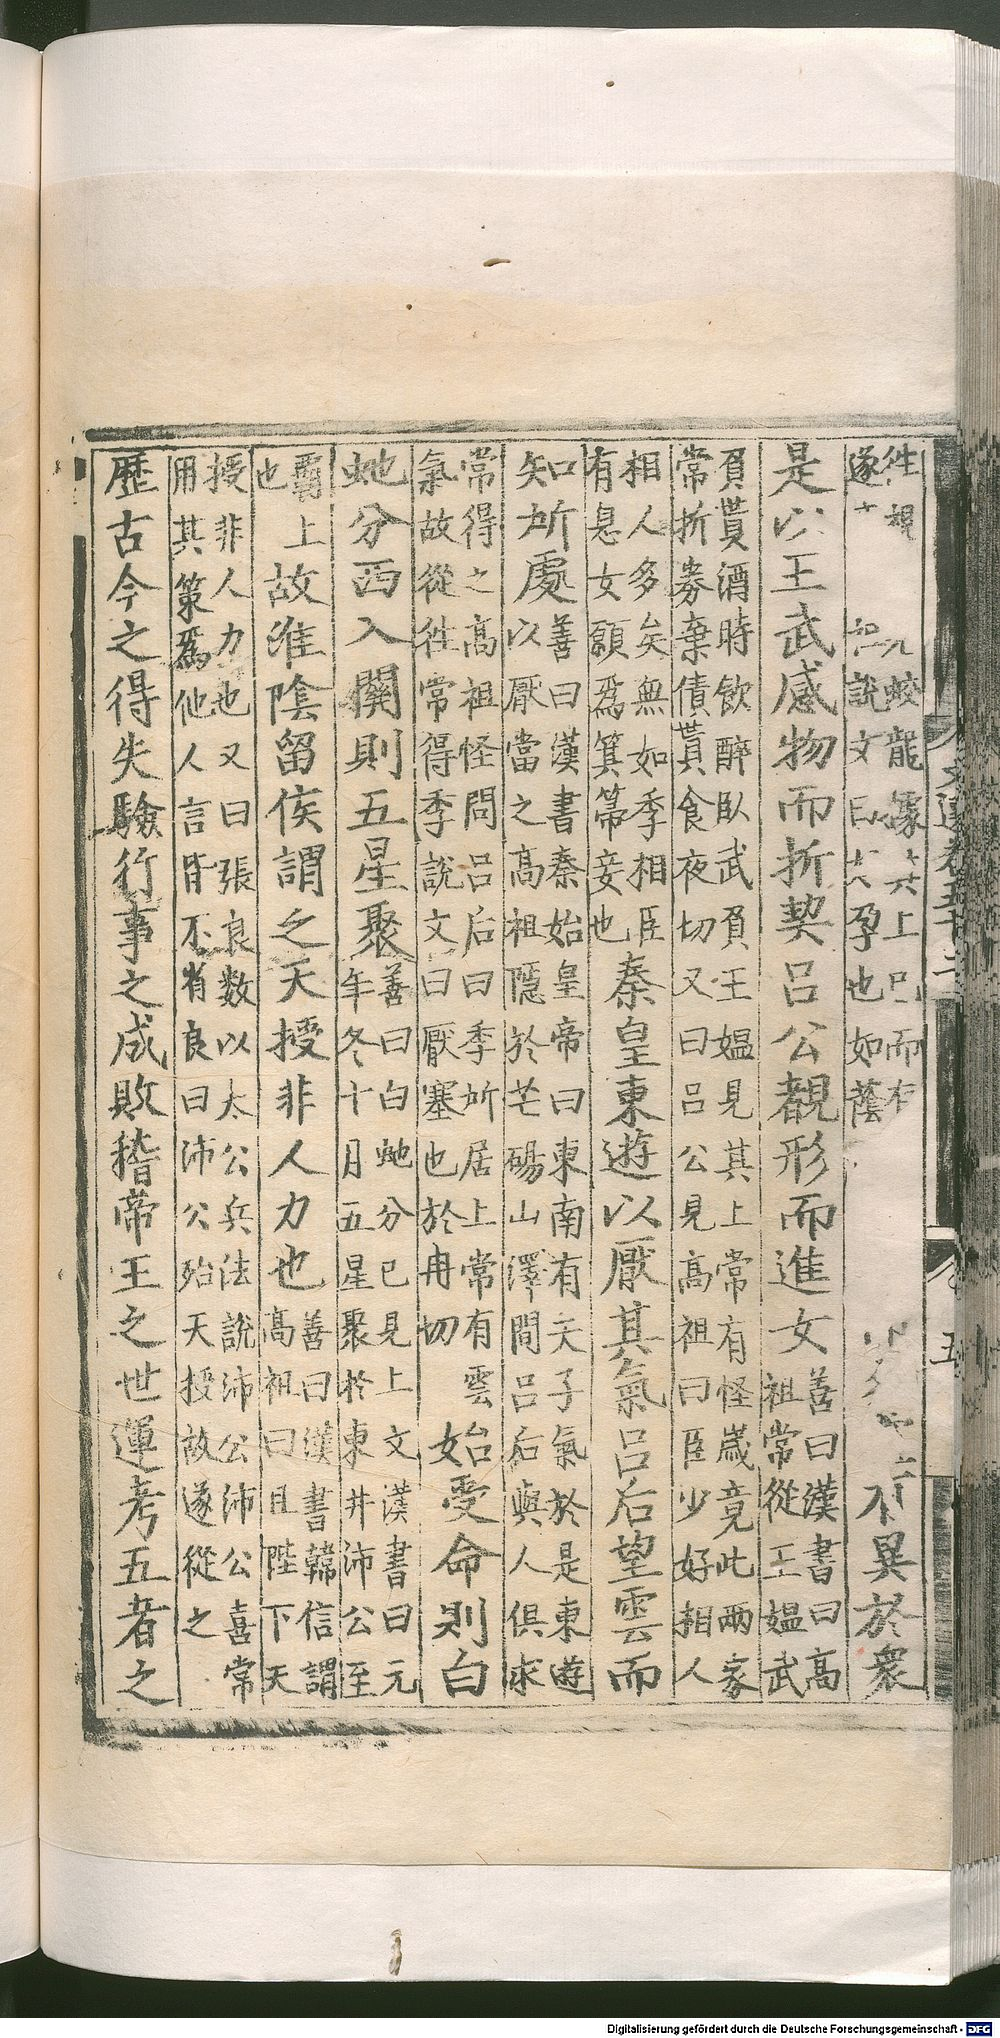 徃視蛟龍據其上已而有遂說文曰孕也如蔭不異於衆
是以王武感物而折契呂公覩形而進女善曰漢書曰高祖常從王媼武
負貰酒時飲醉臥武負王媼見其上常有怪歲竟此兩家常折劵棄債貰食夜切又曰呂公見高祖曰臣少好相人
相人多矣無如季相臣有息女願爲箕箒妾也秦皇東遊以厭其氣呂后望雲而
知所處善曰漢書秦始皇帝曰東南有天子氣於是東遊以厭當之高祖隱於芒碭山澤間呂后與人俱求
常得之高祖怪問呂后曰季所居上常有雲氣故從徃常得季說文曰厭塞也於冉切始受命則白
虵分西入關則五星聚善曰白虵分已見上文漢書曰元年冬十月五星聚於東井沛公至
霸上也故淮陰留侯謂之天授非人力也善曰漢書韓信謂高祖曰且陛下天
授非人力也又曰張良數以太公兵法說沛公沛公喜常用其策爲他人言皆不省良曰沛公殆天授故遂從之
歷古今之得失驗行事之成敗稽帝王之世運考五者之
Digitalisierung gefördert durch die Deutsche Forschungsgemeinschaft - DFG